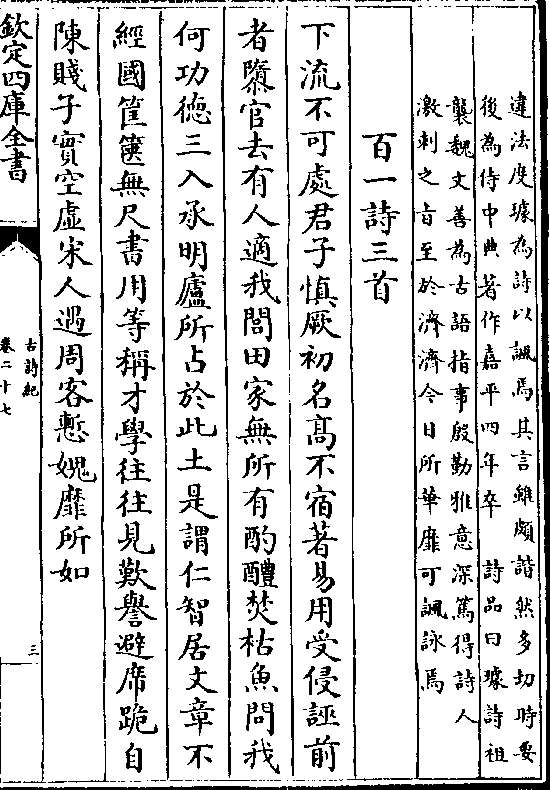 違法度璩為詩以諷焉其言雖頗諧然多切時要
後為侍中典著作嘉平四年卒　詩品曰璩詩祖
襲魏文善為古語指事殷勤雅意深篤得詩人
激刺之旨至於濟濟今日所華靡可諷詠焉
百一詩三首
下流不可處君子慎厥初名髙不宿著易用受侵誣前
者隳官去有人適我閭田家無所有酌醴焚枯魚問我
何功徳三入承明廬所占於此土是謂仁智居文章不
經國筐篋無尺書用等稱才學往往見歎譽避席跪自
陳賤子實空虛宋人遇周客慙媿靡所如
欽定四庫全書
古詩紀
卷二十七
三